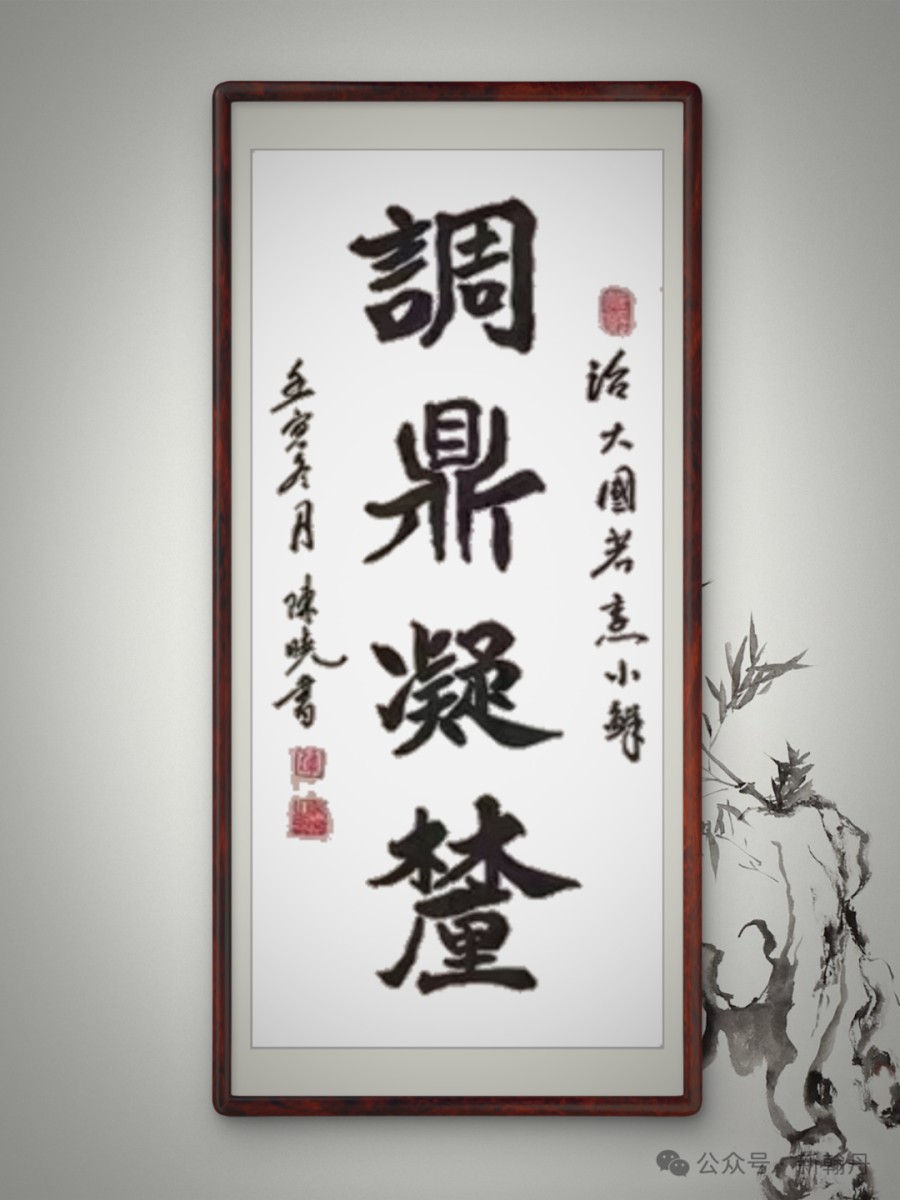 治大國若烹小鮮
調鼎凝釐
壬寅冬月 陳曉書
公众号 · 新翰丹